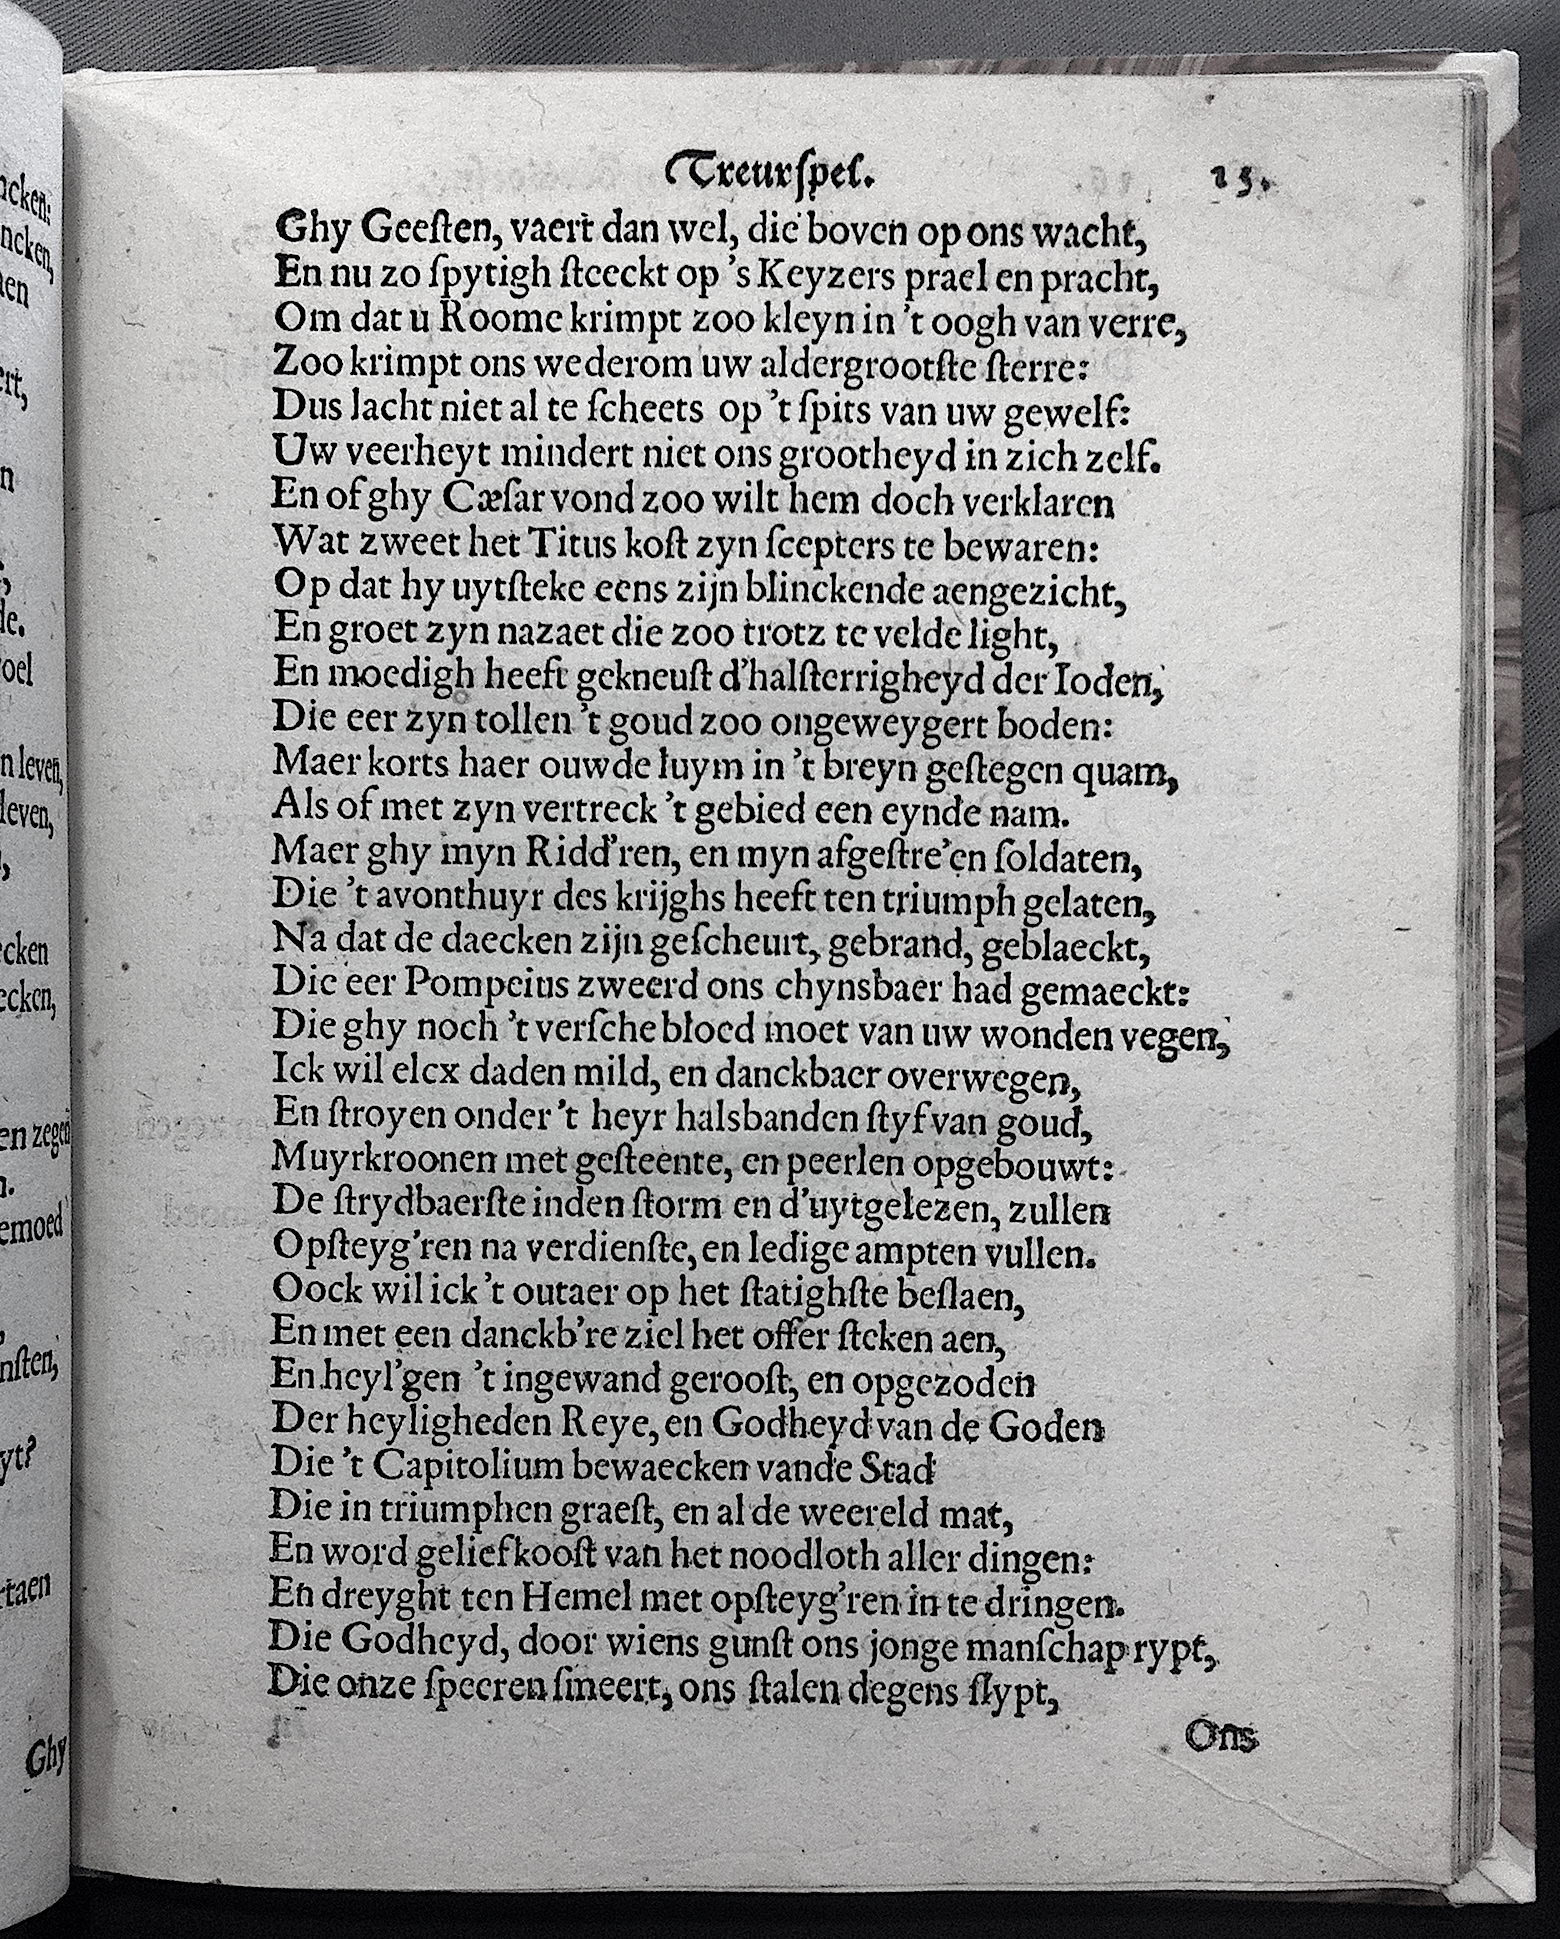 Treurſpel. 15.
Ghy Geeſten, vaert dan wel, die boven op ons wacht,
En nu zo ſpytigh ſteeckt op 's Keyzers prael en pracht,
Om dat u Roome krimpt zoo kleyn in 't oogh van verre,
Zoo krimpt ons wederom uw aldergrootſte ſterre:
Dus lacht niet al te ſcheets op 't ſpits van uw gewelf:
Uw veerheyt mindert niet ons grootheyd in zich zelf.
En of ghy Cæſar vond zoo wilt hem doch verklaren
Wat zweet het Titus koſt zyn ſcepters te bewaren:
Op dat hy uytſteke eens zijn blinckende aengezicht,
En groet zyn nazaet die zoo trotz te velde light,
En moedigh heeft gekneuſt d'halſterrigheyd der Ioden,
Die eer zyn tollen 't goud zoo ongeweygert boden:
Maer korts haer ouwde luym in 't breyn geſtegen quam,
Als of met zyn vertreck 't gebied een eynde nam.
Maer ghy myn Ridd'ren, en myn afgeſtre'en ſoldaten,
Die 't avonthuyr des krijghs heeft ten triumph gelaten,
Na dat de daecken zijn geſcheurt, gebrand, geblaeckt,
Die eer Pompeius zweerd ons chynsbaer had gemaeckt:
Die ghy noch 't verſche bloed moet van uw wonden vegen,
Ick wil elcx daden mild, en danckbaer overwegen,
En ſtroyen onder 't heyr halsbanden ſtyf van goud,
Muyrkroonen met geſteente, en peerlen opgebouwt:
De ſtrydbaerſte inden ſtorm en d'uytgelezen, zullen
Opſteyg'ren na verdienſte, en ledige ampten vullen.
Oock wil ick 't outaer op het ſtatighſte beſlaen,
En met een danckb're ziel het offer ſteken aen,
En heyl'gen 't ingewand gerooſt, en opgezoden
Der heyligheden Reye, en Godheyd van de Goden
Die 't Capitolium bewaecken vande Stad
Die in triumphen graeſt, en al de weereld mat,
En word geliefkooſt van het noodloth aller dingen:
En dreyght ten Hemel met opſteyg'ren in te dringen.
Die Godheyd, door wiens gunſt ons jonge manſchap rypt,
Die onze ſpeeren ſmeert, ons ſtalen degens ſlypt,
Ons